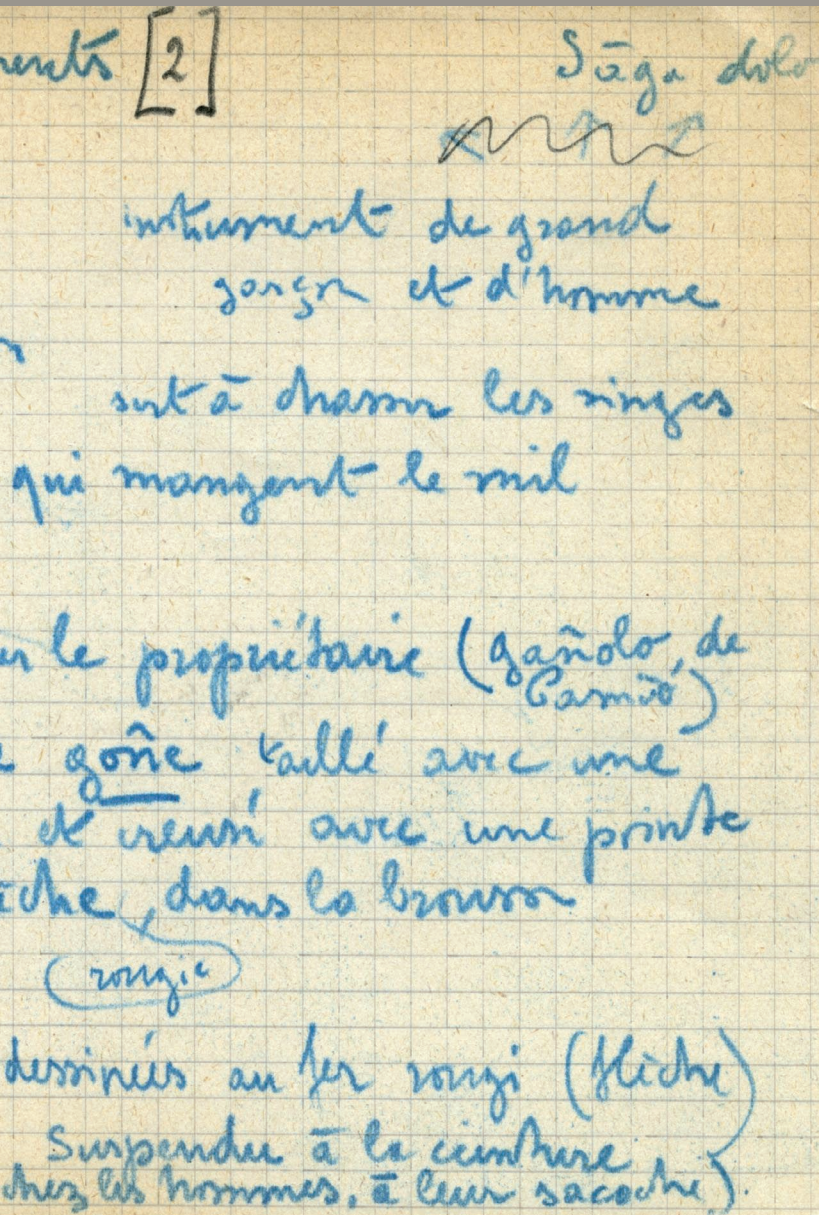 ments [2] Sāga dolo
instrument de grand
garçon et d'homme
sert à chasser les singes
qui mangent le mil
le propriétaire (gañolo, de
goñe taillé avec une
et creusé avec une pointe
, dans la brousse
(rougie)
dessinées au fer rougi (flèche)
Suspendue à la ceinture
chez les hommes, à leur sacoche).